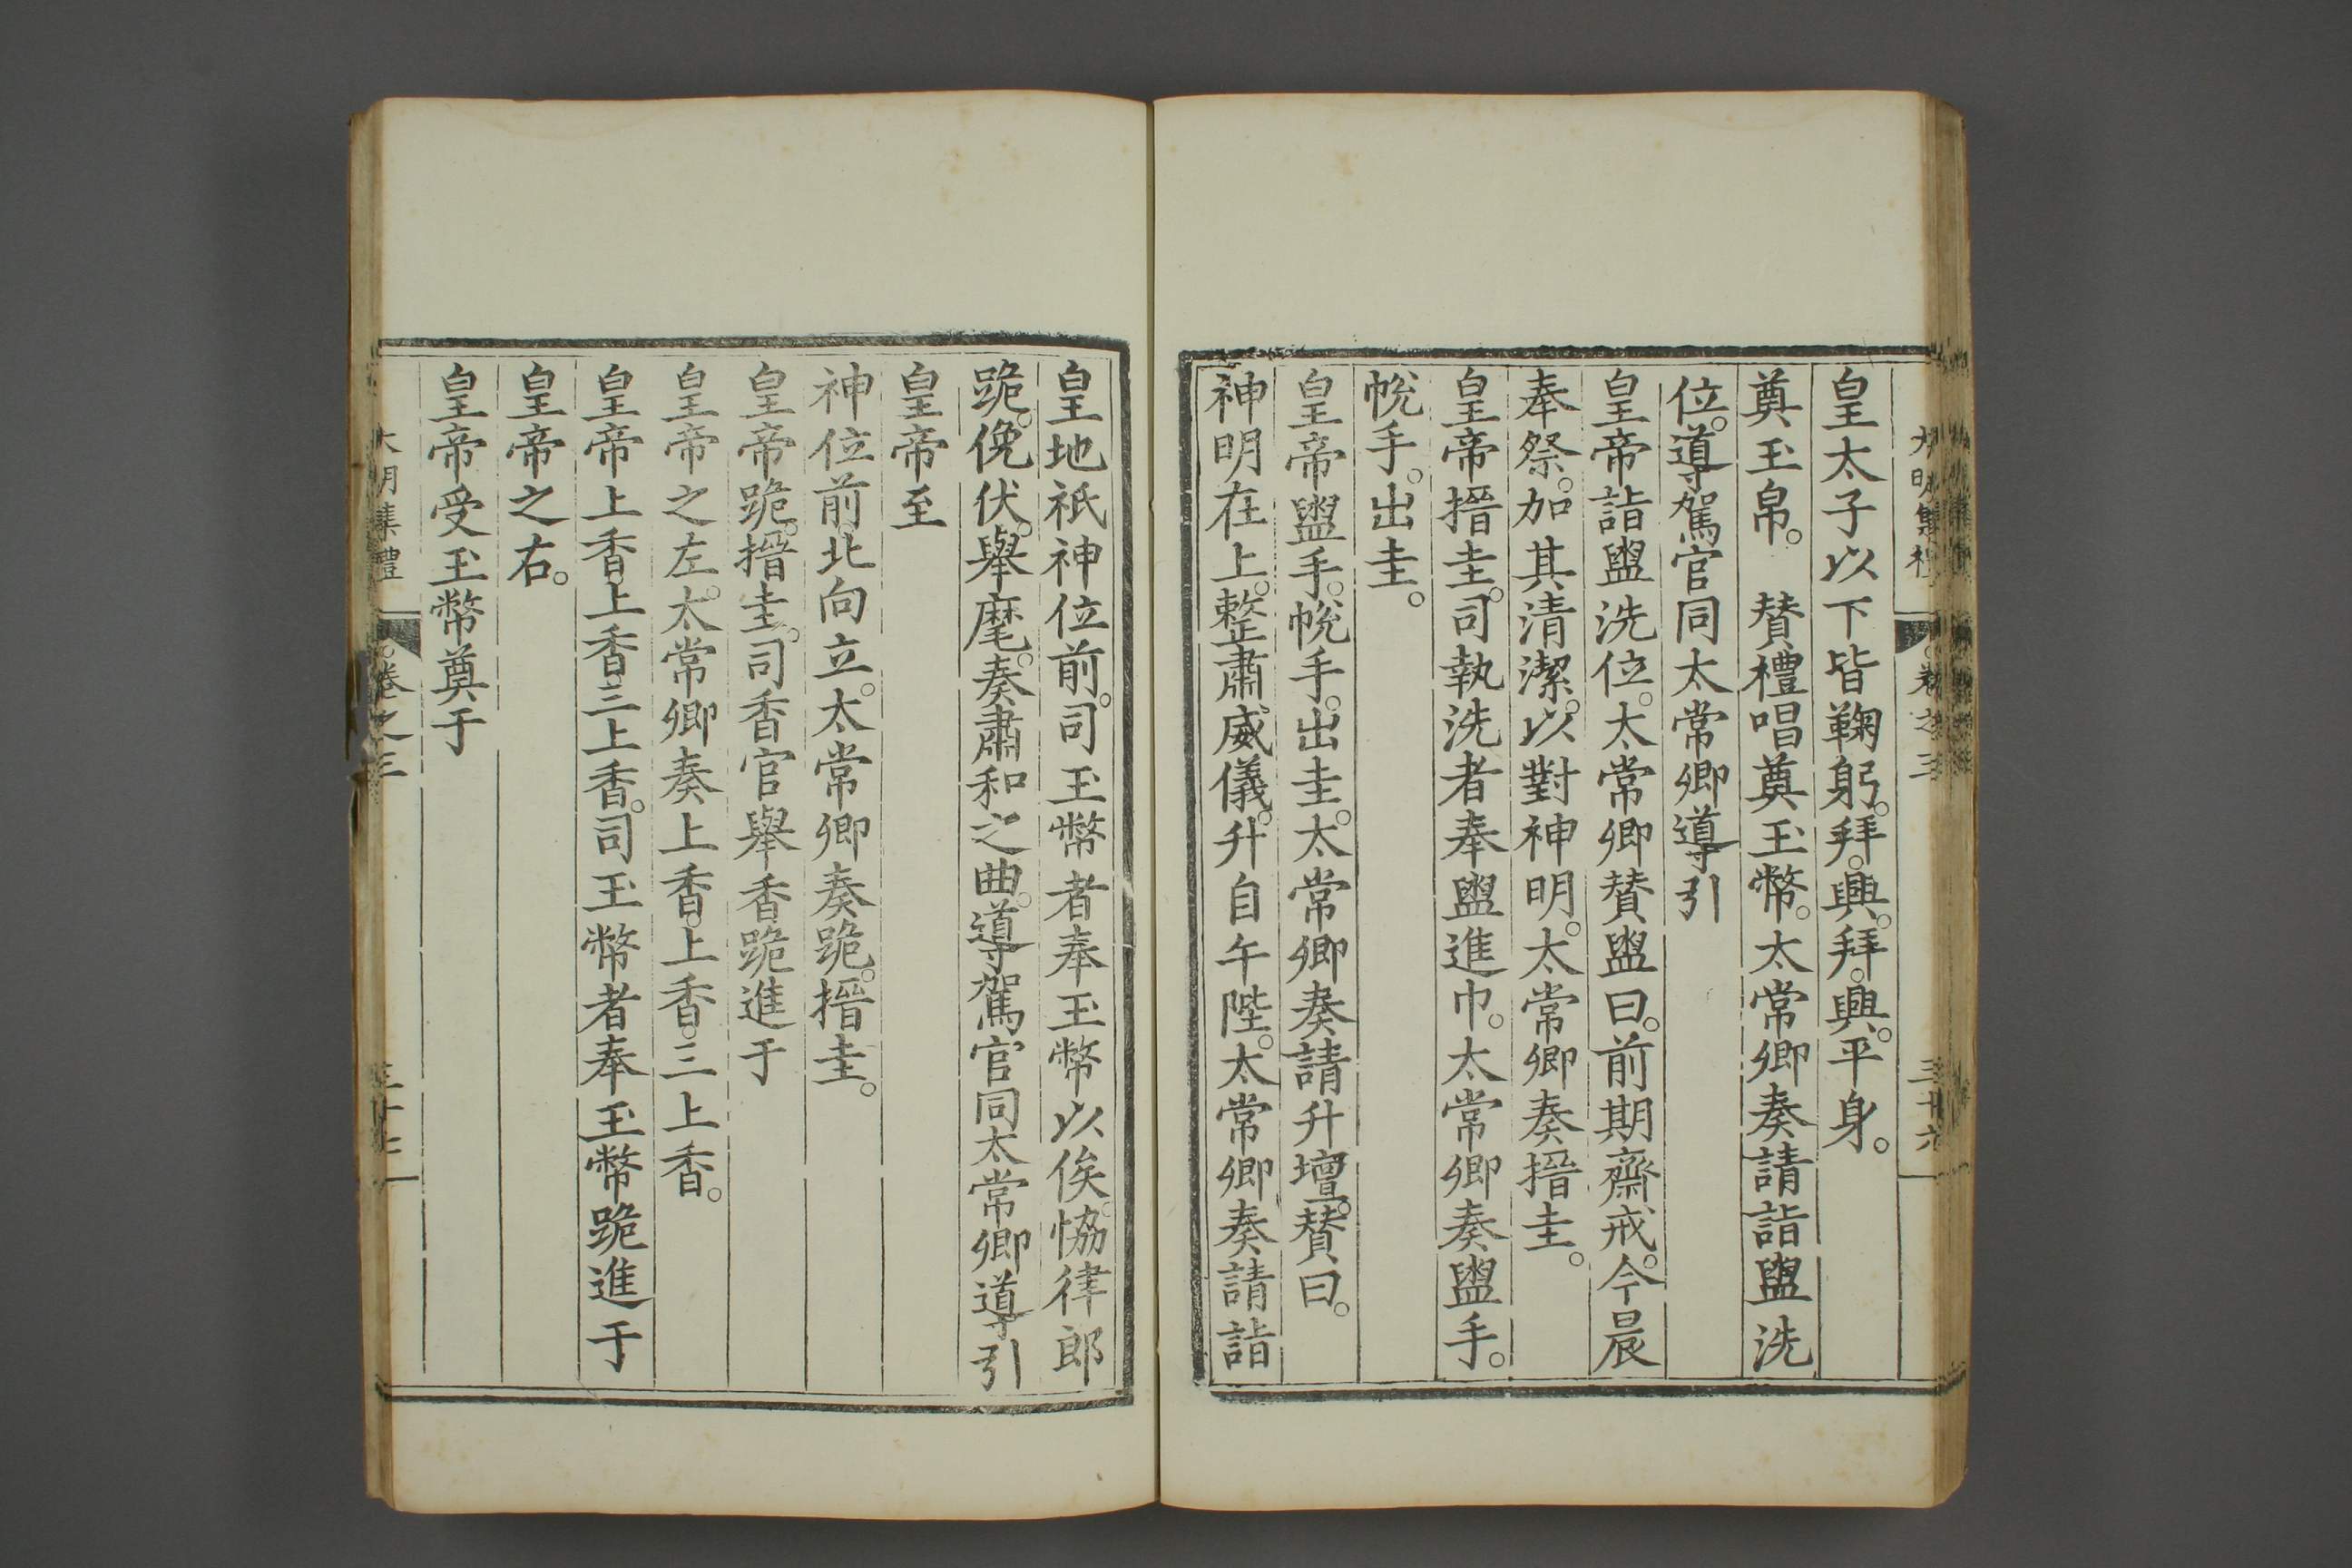 大明集禮 卷之三 三十六
皇太子以下皆鞠躬。拜。興。拜。興。平身。
奠玉帛。 贊禮唱奠玉幣。太常卿奏請詣盥洗
位。導駕官同太常卿導引
皇帝詣盥洗位。太常卿贊盥曰。前期齋戒。今晨
奉祭。加其清潔。以對神明。太常卿奏搢圭。
皇帝搢圭。司執洗者奉盥進巾。太常卿奏盥手。
帨手。出圭。
皇帝盥手。帨手。出圭。太常卿奏請升壇。贊曰。
神明在上。整肅威儀。升自午陛。太常卿奏請詣
皇地祇神位前。司玉幣者奉玉幣以俟。恊律郎
跪。俛伏。舉麾。奏肅和之曲。導駕官同太常卿導引
皇帝至
神位前。北向立。太常卿奏跪。搢圭。
皇帝跪。搢圭。司香官舉香跪進于
皇帝之左。太常卿奏上香。上香。三上香。
皇帝上香。上香。三上香。司玉幣者奉玉幣跪進于
皇帝之右。
皇帝受玉幣奠于
大明集禮 卷之三 三十七